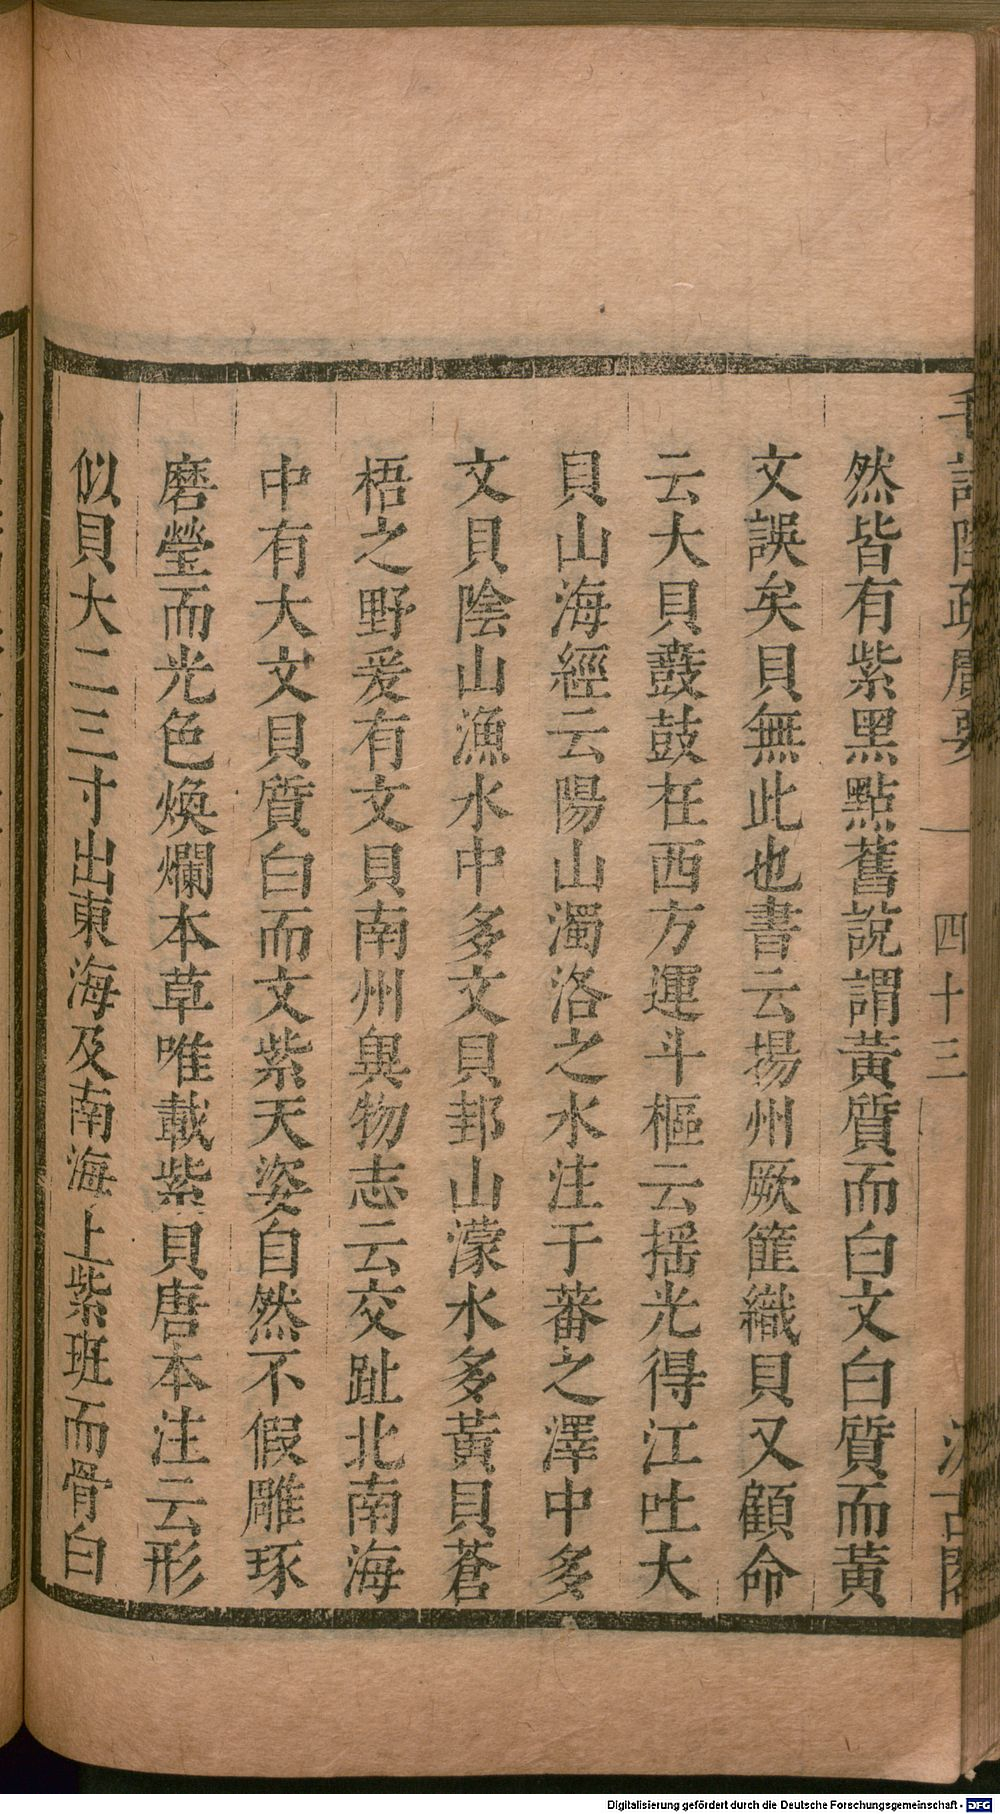 毛詩陸疏廣要 四十三 汲古閣
然皆有紫黑點舊說謂黃質而白文白質而黃
文誤矣貝無此也書云揚州厥篚織貝又顧命
云大貝鼖鼓在西方運斗樞云揺光得江吐大
貝山海經云陽山濁洛之水注于蕃之澤中多
文貝陰山漁水中多文貝邽山濛水多黃貝蒼
梧之野爰有文貝南州異物志云交趾北南海
中有大文貝質白而文紫天姿自然不假雕琢
磨瑩而光色煥爛本草唯載紫貝唐本注云形
似貝大二三寸出東海及南海上紫斑而骨白
Digitalisierung gefördert durch die Deutsche Forschungsgemeinschaft - DFG